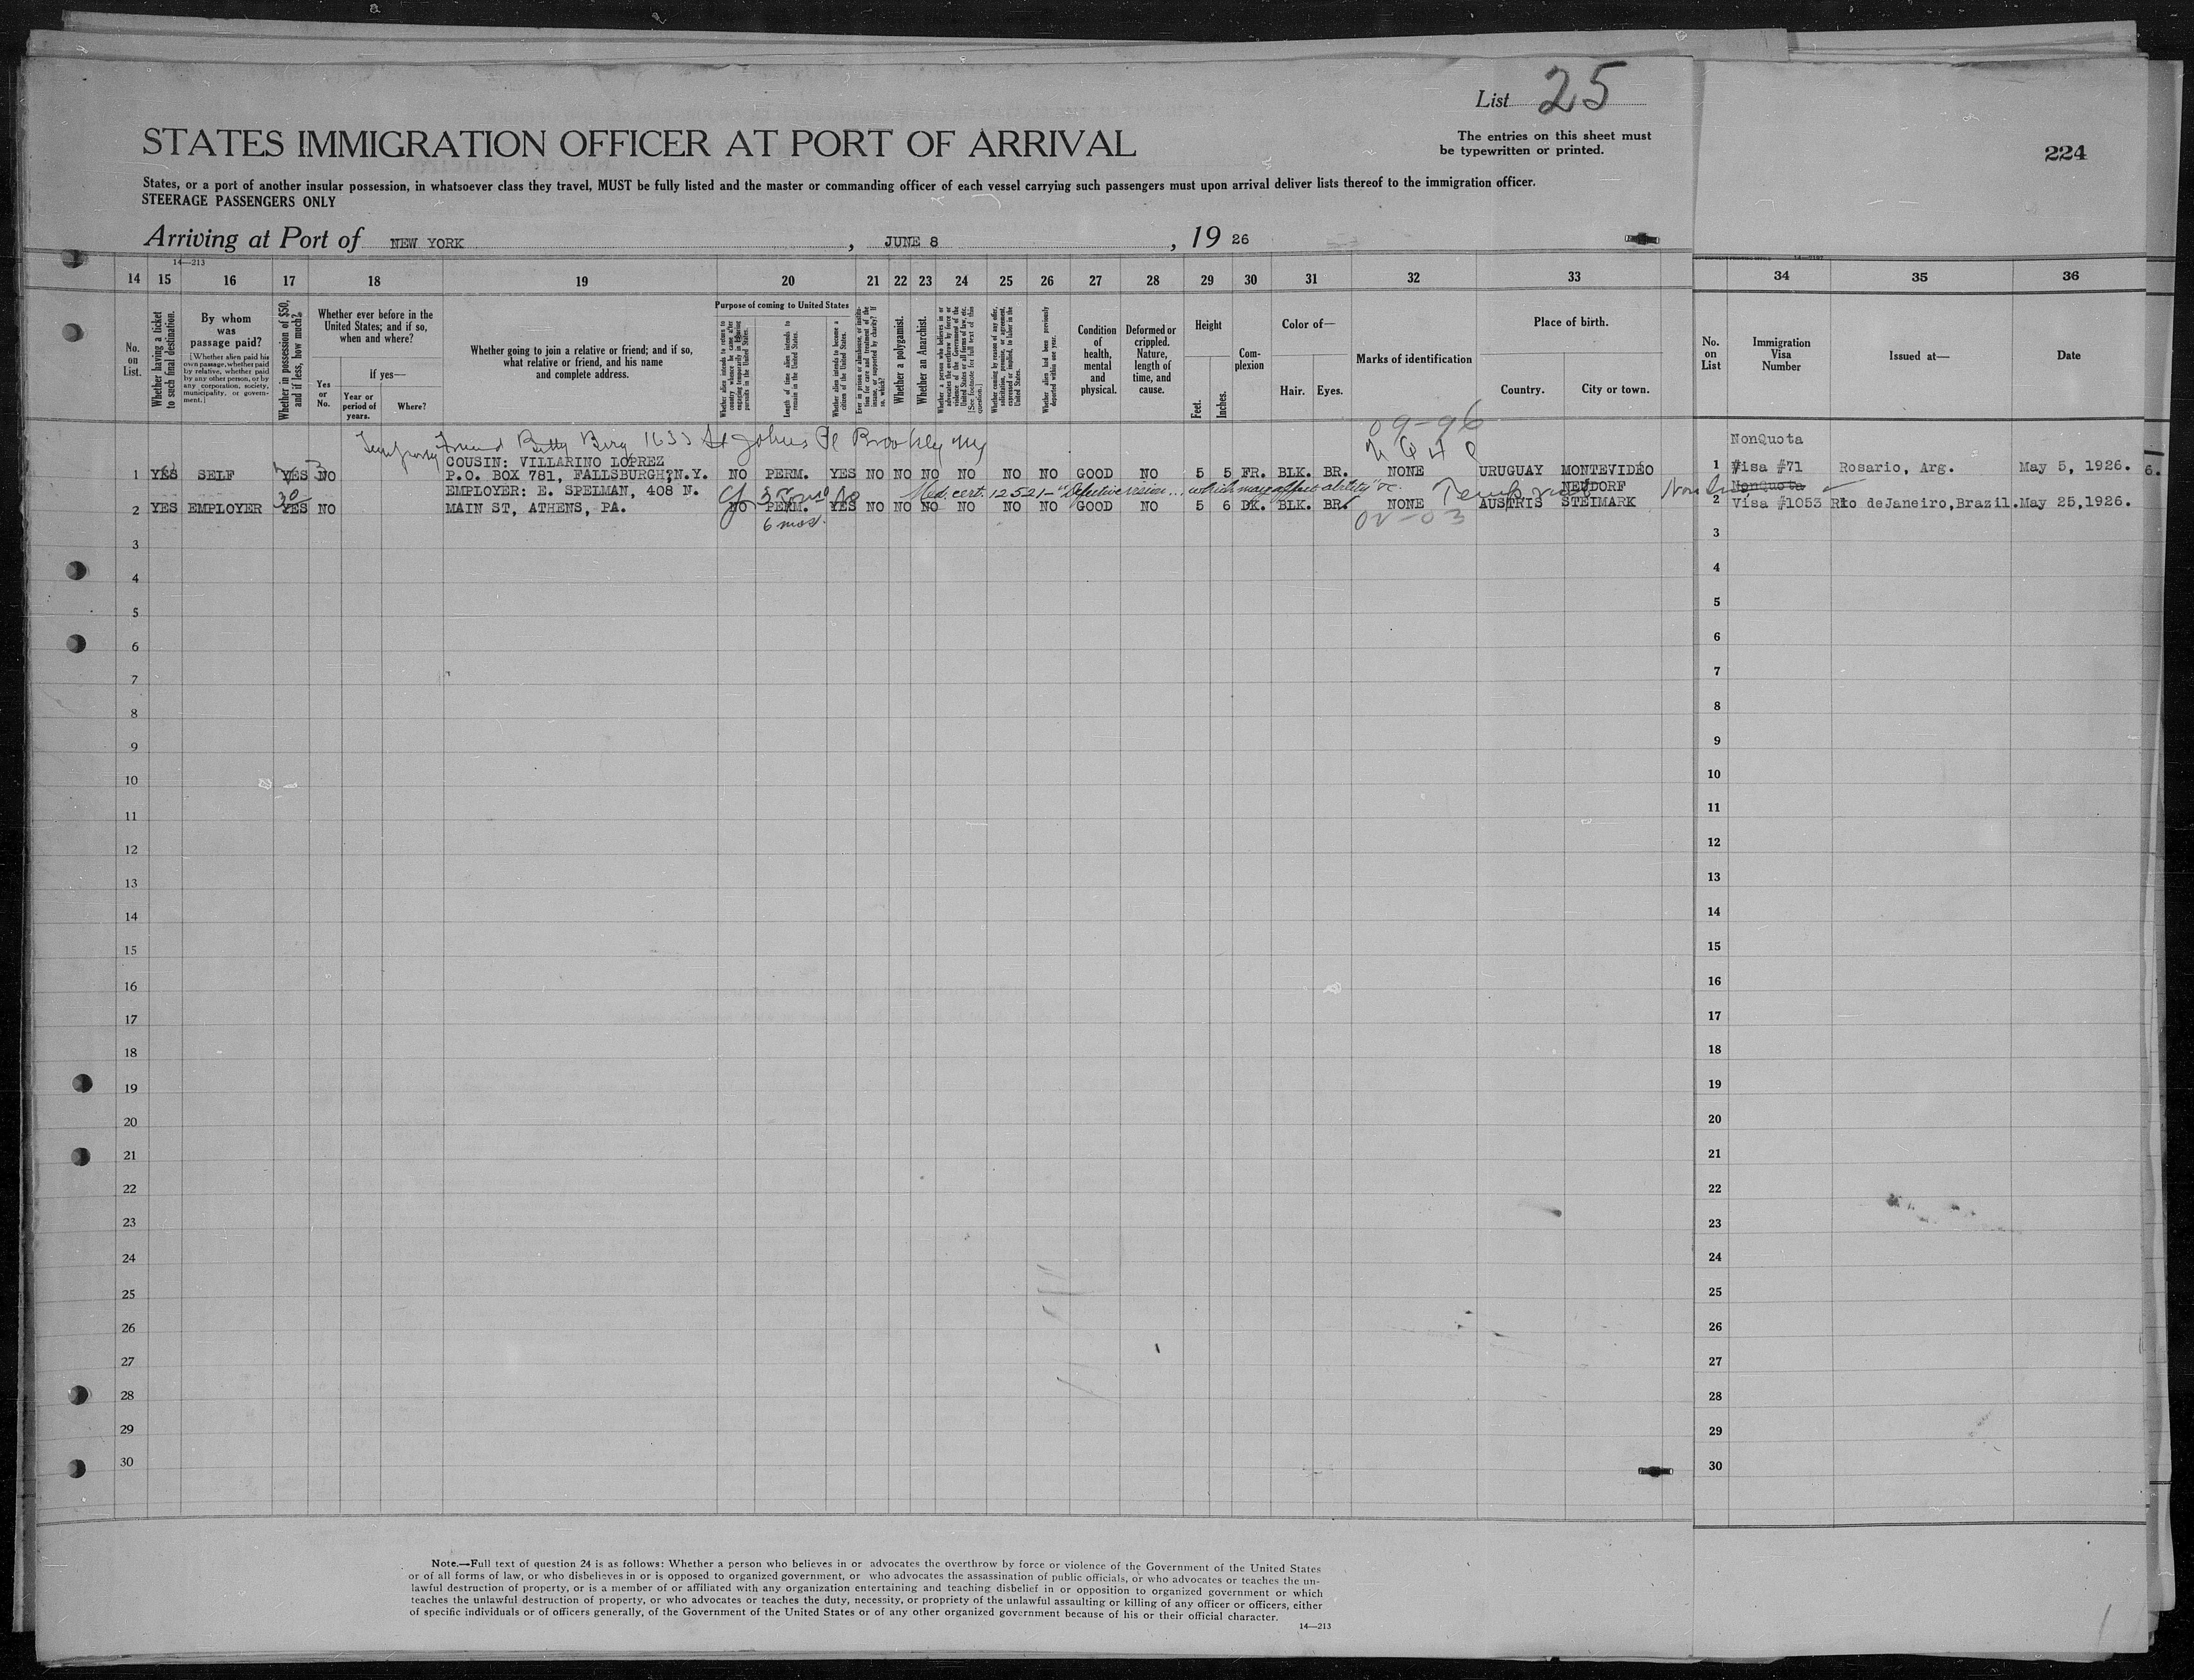 List 25
STATES IMMIGRATION OFFICER AT PORT OF ARRIVAL
The entries on this sheet must
be typewritten or printed.
224
States, or a port of another insular possession, in whatsoever class they travel, MUST be fully listed and the master or commanding officer of each vessel carrying such passengers must upon arrival deliver lists thereof to the immigration officer.
STEERAGE PASSENGERS ONLY
Arriving at Port of NEW YORK, JUNE 8, 19 26
14—213
14 15 16 17 18 19 20 21 22 23 24 25 26 27 28 29 30 31 32 33 34 35 36
No. on List.
Whether having a ticket to such final destination.
By whom was passage paid?
[Whether alien paid his own passage, whether paid by relative, whether paid by any other person, or by any corporation, society, municipality, or government.]
Whether in possession of $50, and if less, how much?
Whether ever before in the United States; and if so, when and where?
Yes or No.
If yes—
Year or period of years.
Where?
Whether going to join a relative or friend; and if so, what relative or friend, and his name and complete address.
Purpose of coming to United States
Whether alien intends to return to country whence he came after engaging temporarily in laboring pursuits in the United States.
Length of time alien intends to remain in the United States.
Whether alien intends to become a citizen of the United States.
Ever in prison or almshouse, or institution for care and treatment of the insane, or supported by charity? If so, which?
Whether a polygamist.
Whether an Anarchist.
Whether a person who believes in or advocates the overthrow by force or violence of the Government of the United States or all forms of law, etc. [See footnote for full text of this question.]
Whether coming by reason of any offer, solicitation, promise, or agreement, expressed or implied, to labor in the United States.
Whether alien had been previously deported within one year.
Condition of health, mental and physical.
Deformed or crippled. Nature, length of time, and cause.
Height
Feet.
Inches.
Complexion
Color of—
Hair. Eyes.
Marks of identification
Place of birth.
Country. City or town.
No. on List
Immigration Visa Number
Issued at—
Date
09-96
Friend Betty Berg 1633 St Johns Pl Brooklyn NY
NonQuota
COUSIN: VILLARINO LOPREZ
1 YES SELF YES NO P.O. BOX 781, FALLSBURGH, N.Y. NO PERM. YES NO NO NO NO NO NO GOOD NO 5 5 FR. BLK. BR. NONE URUGUAY MONTEVIDEO 1 Visa #71 Rosario, Arg. May 5, 1926. 6.
30 EMPLOYER: E. SPELMAN, 408 N. No Med. cert. 12521—"Defective vision... which may affect ability" &c. NEUDORF NonQuota
2 YES EMPLOYER YES NO MAIN ST, ATHENS, PA. NO PERM. YES NO NO NO NO NO NO GOOD NO 5 6 DK. BLK. BR. NONE AUSTRIS STEIMARK 2 Visa #1053 Rio deJaneiro, Brazil. May 25, 1926.
6 mos. 02-03
3 3
4 4
5 5
6 6
7 7
8 8
9 9
10 10
11 11
12 12
13 13
14 14
15 15
16 16
17 17
18 18
19 19
20 20
21 21
22 22
23 23
24 24
25 25
26 26
27 27
28 28
29 29
30 30
Note.—Full text of question 24 is as follows: Whether a person who believes in or advocates the overthrow by force or violence of the Government of the United States
or of all forms of law, or who disbelieves in or is opposed to organized government, or who advocates the assassination of public officials, or who advocates or teaches the un-
lawful destruction of property, or is a member of or affiliated with any organization entertaining and teaching disbelief in or opposition to organized government or which
teaches the unlawful destruction of property, or who advocates or teaches the duty, necessity, or propriety of the unlawful assaulting or killing of any officer or officers, either
of specific individuals or of officers generally, of the Government of the United States or of any other organized government because of his or their official character.
14—213